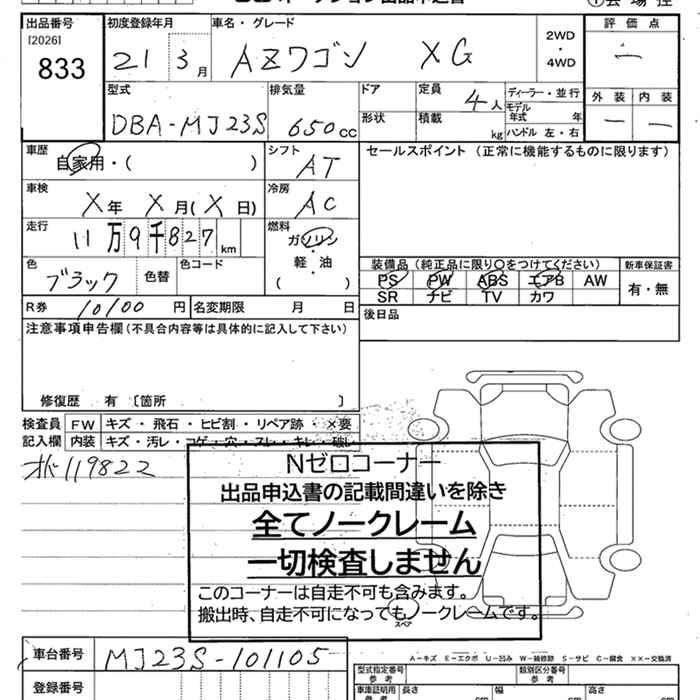 出品番号 初度登録年月 車名・グレード 評価点
[2026] 833 21 3月 AZワゴン XG 2WD・4WD 一
型式 排気量 ドア 定員 ディーラー・並行 外装 内装
DBA-MJ23S 650cc 形状 積載 4人 kg モデル年式 年 ハンドル 左・右 一 一
車歴 シフト セールスポイント (正常に機能するものに限ります)
自家用・( ) AT
車検 冷房
X年 X月(X日) AC
走行 燃料
11万9千827km ガソリン
軽・油
( )
色 色替 色コード 装備品 (純正品に限り○をつけてください) 新車保証書
ブラック PS PW ABS エアB AW 有・無
SR ナビ TV カワ
R券 10100円 名変期限 月 日 後日品
注意事項申告欄(不具合内容等は具体的に記入して下さい)
修復歴 有 〔箇所 〕
検査員 FW キズ・飛石・ヒビ割・リペア跡・×要
記入欄 内装 キズ・汚レ・コゲ・穴・スレ・キレ・破レ
119822
Nゼロコーナー
出品申込書の記載間違いを除き
全てノークレーム
一切検査しません
このコーナーは自走不可も含みます。
搬出時、自走不可になってもノークレームです。
スペア
A-キズ E-エクボ U-凹み W-補修跡 S-サビ C-腐食 XX-交換済
車台番号 MJ23S-101105 型式指定番号 参考 類別区分番号 参考
登録番号 車庫証明用 参考 長さ cm 幅 cm 高さ cm